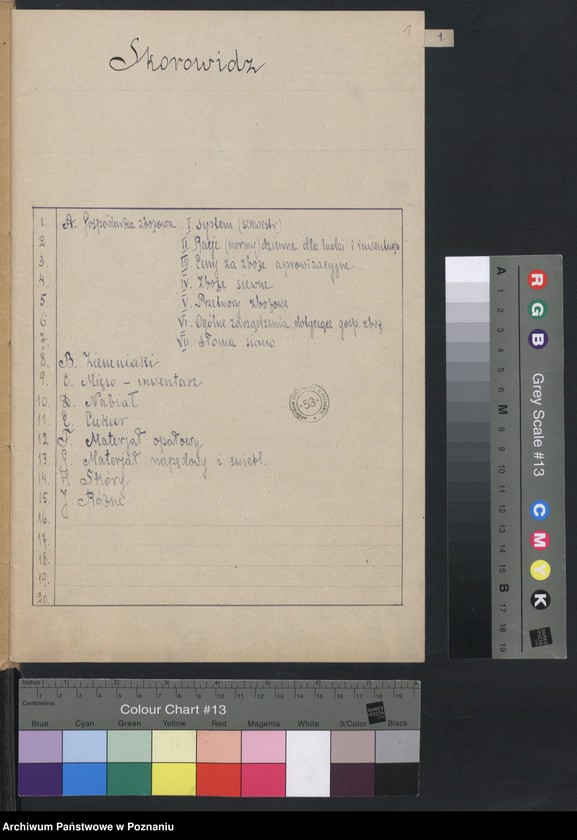 1
1.
Skorowidz
1. A. Gospodarka zbożowa. I system (sekwestr)
2 II Racje (normy) dzienne dla ludzi i inwentarza
3. III Ceny za zboże aprowizacyjne
4. IV. Zboże siewne
5 V. Przetwory zbożowe
6. VI. Ogólne zarządzenia dotyczące gosp. zboż
7. VII. Słoma siano
8. B. Ziemniaki
9. C. Mięso – inwentarz
10. D. Nabiał
11. E. Cukier
12 F. Materjał opałowy
13. G. Materjał napędowy i świetl.
14. H. Skóry
15. J. Różne
16.
17.
18.
19.
20.
53
Inches 1 2 3 4 5 6 7 8
1 2 3 4 5 6 7 8 9 10 11 12 13 14 15 16 17 18 19
Centimetres
Colour Chart #13
Blue Cyan Green Yellow Red Magenta White 3/Color Black
R G B Grey Scale #13 C M Y K
A 1 2 3 4 5 6 M 8 9 10 11 12 13 14 15 B 17 18 19
Archiwum Państwowe w Poznaniu